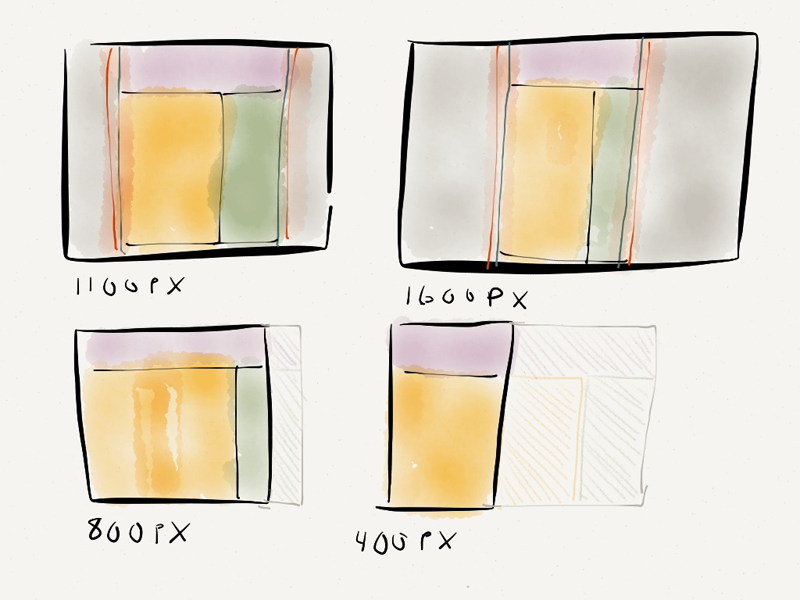 1100PX
1600PX
800PX
400PX